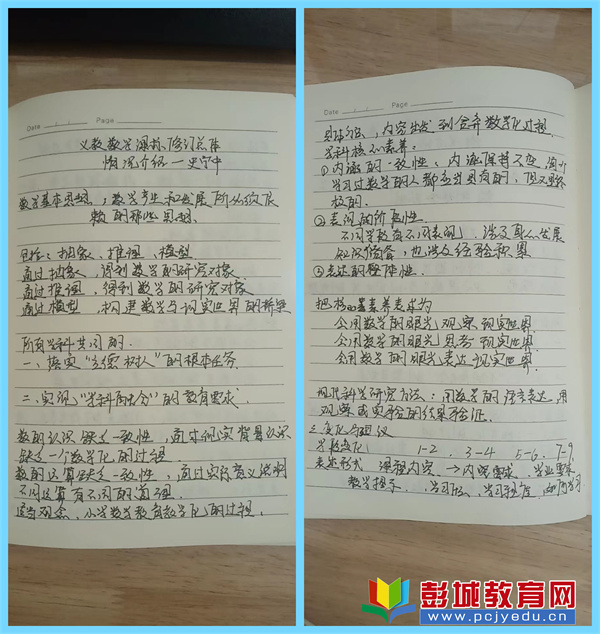 Date Page
义教数学课标修订总体
情况介绍—史宁中
数学基本思想，数学产生和发展所必须依
赖的那些思想.
包括：抽象、推理、模型
通过抽象，得到数学的研究对象.
通过推理，得到数学的研究对象
通过模型，构建数学与现实世界的桥梁
所有学科共同的.
一、落实“立德树人”的根本任务.
二、实现“学科融合”的教育要求.
数的认识缺乏一致性，通过现实背景认识
缺乏一个数学化的过程.
数的运算缺乏一致性，通过实际意义说明
不同运算有不同的道理.
小学数学教育数学化的过程.
Date Page
内容 到 数学化过程.
学科核心素养：
①内涵的一致性：内涵保持不变，
学习过数学的人都应当具有的，
②表现的阶段性.
不同学段有不同表现，涉及身心发展
知识储备，也涉及经验积累
③表达的整体性.
把 素养表述为
会用数学的眼光观察现实世界.
会用数学的眼光思考现实世界.
会用数学的眼光表达现实世界.
现代科学研究方法：用数学的语言表达，用
观察或实验的结果验证.
三.变化与建议
学段变化： 1-2 . 3-4 5-6 . 7-9.
表述形式 课程内容 → 内容要求、学业要求
教学提示.
彭城教育网
www.pcjyedu.cn